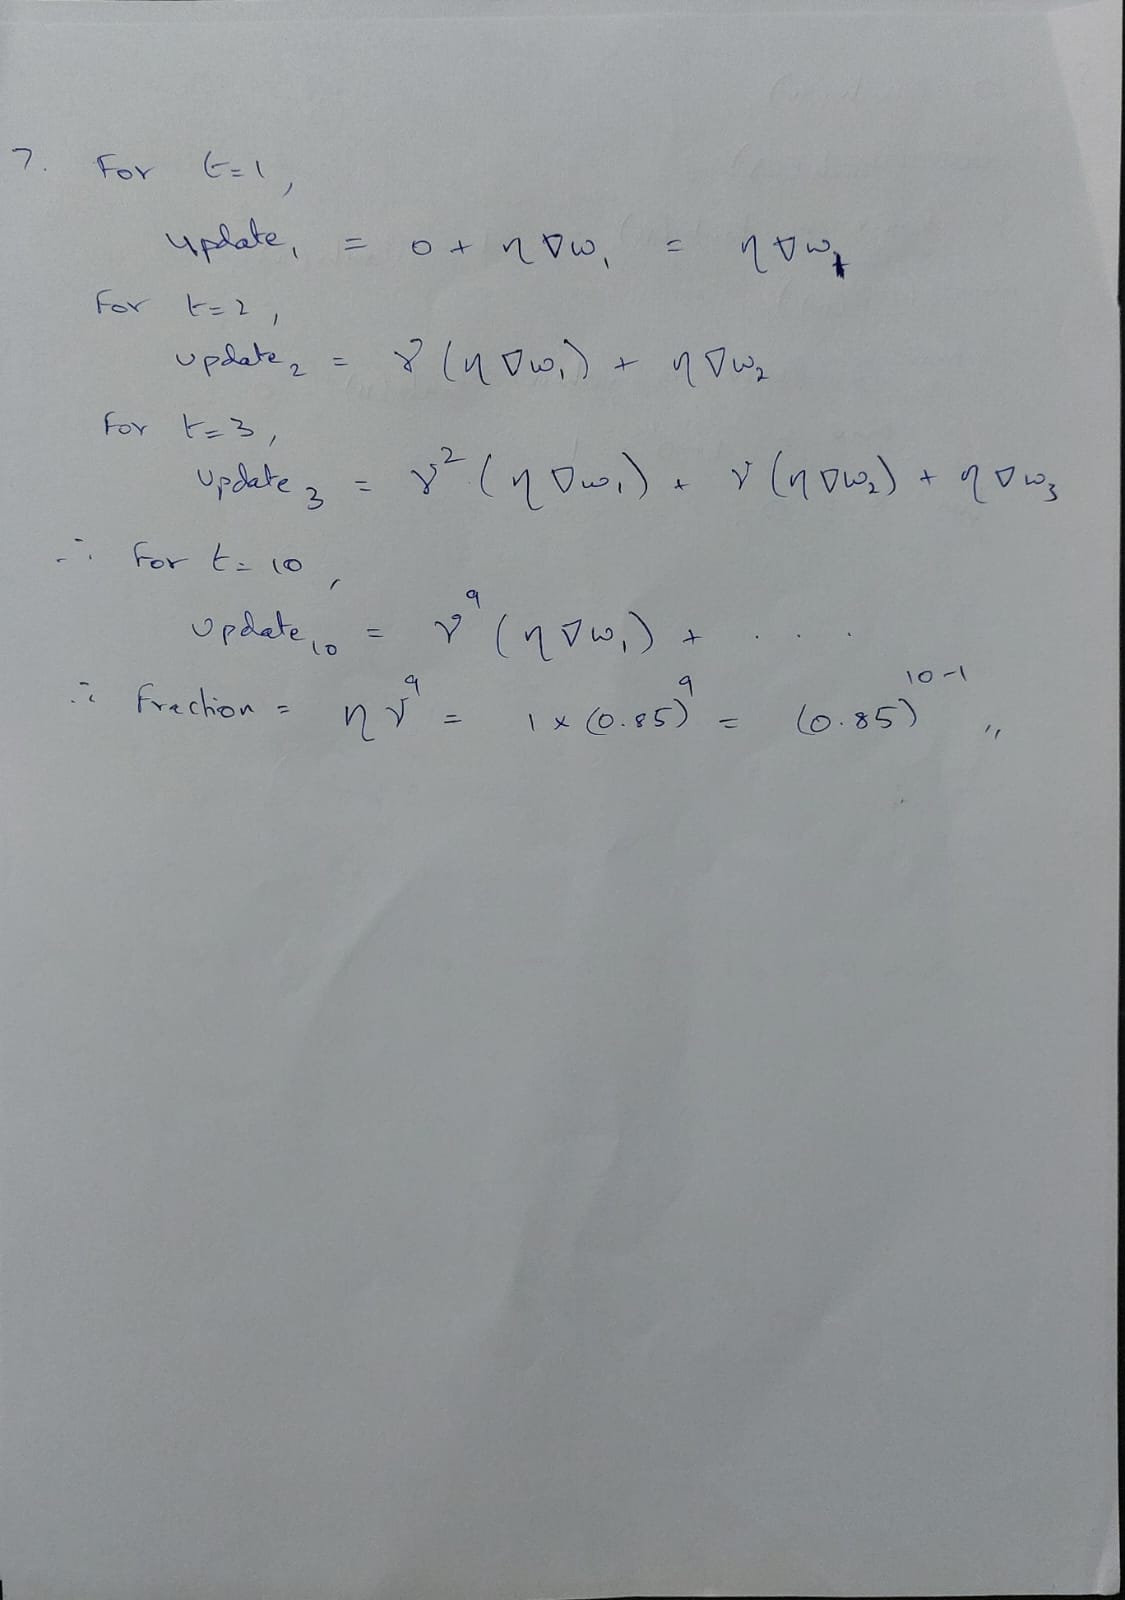 7. For t=1,
update₁ = 0 + η∇w₁ = η∇w₁
For t=2,
update₂ = γ(η∇w₁) + η∇w₂
For t=3,
update₃ = γ²(η∇w₁) + γ(η∇w₂) + η∇w₃
∴ For t=10,
update₁₀ = γ⁹(η∇w₁) + . . .
∴ Fraction = ηγ⁹ = 1×(0.85)⁹ = (0.85)¹⁰⁻¹ ,,